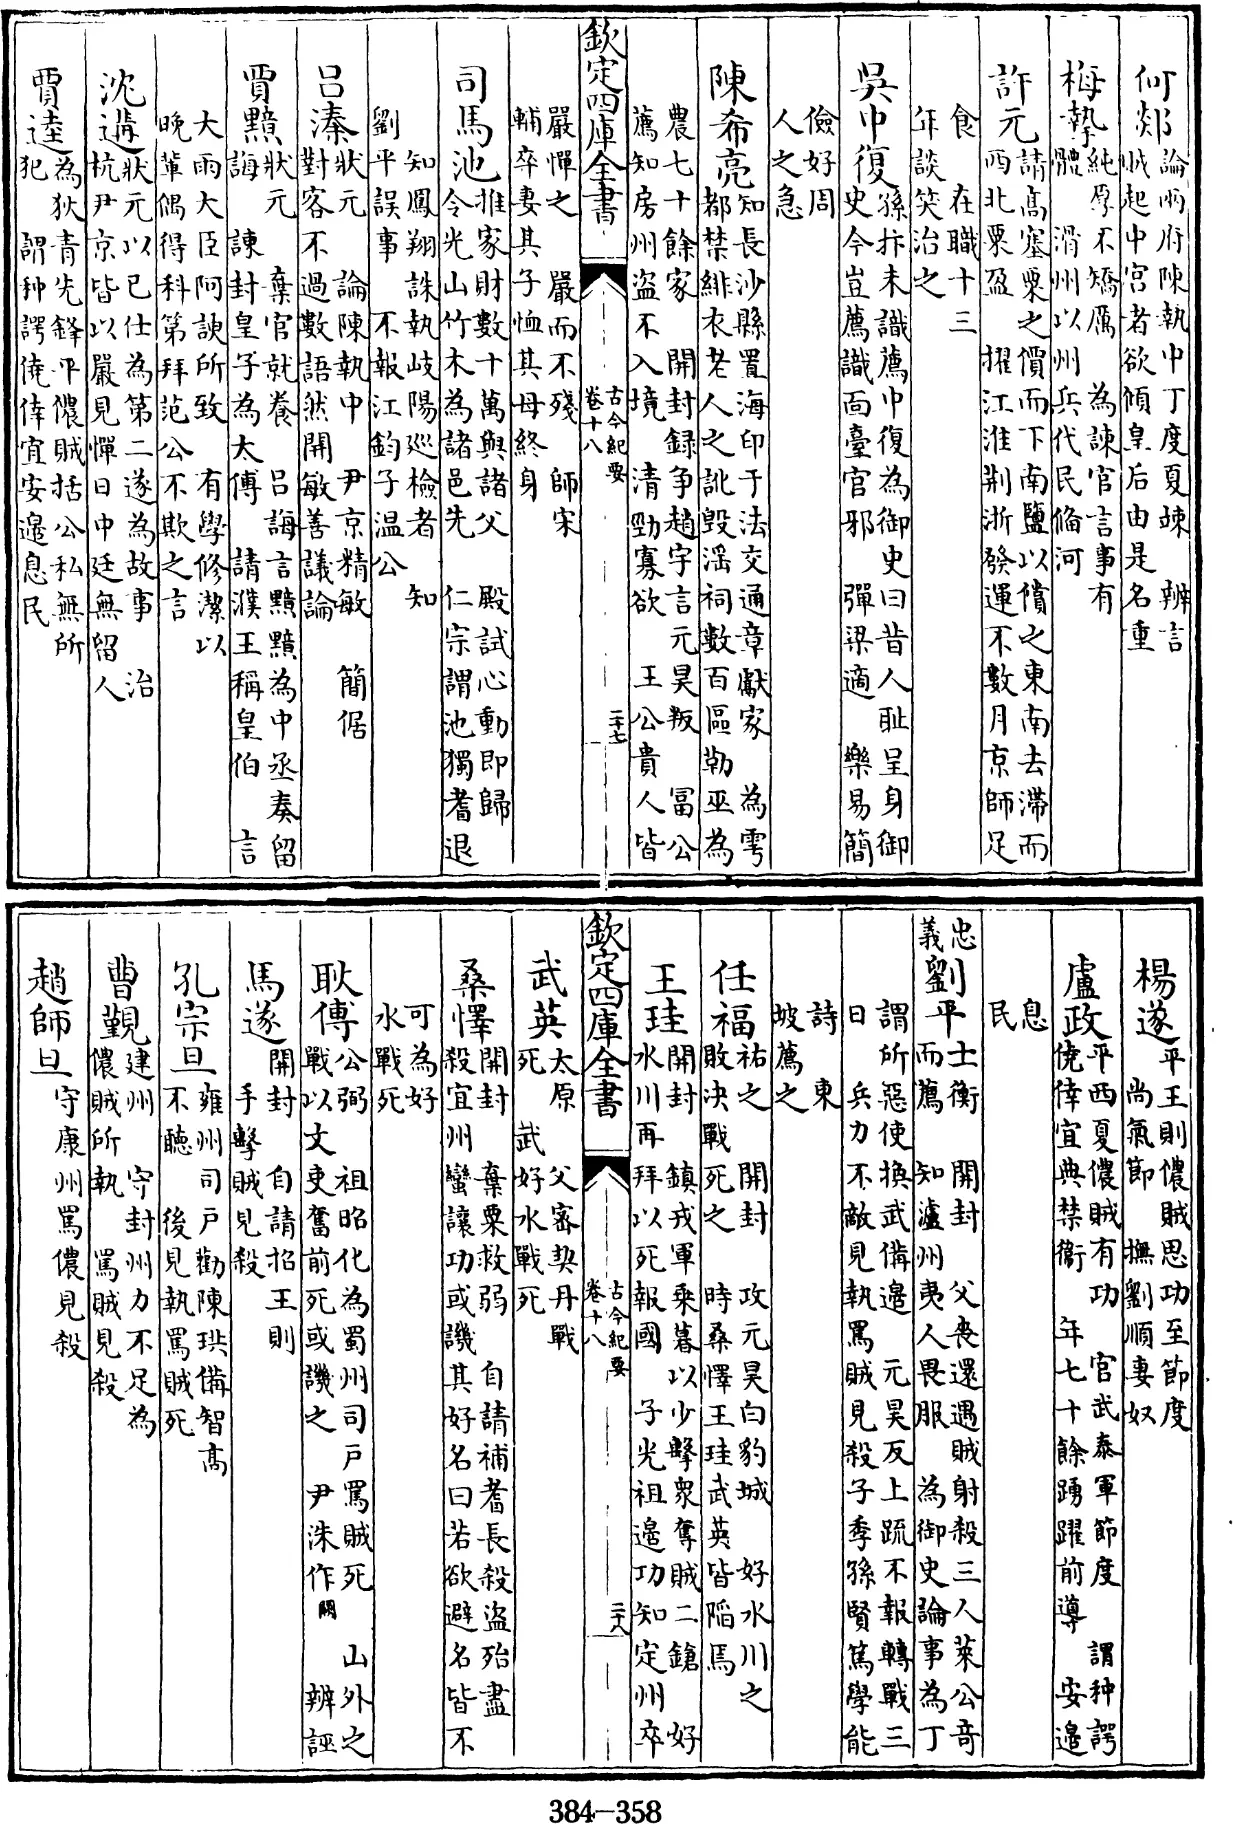 何郯論兩府陳執中丁度夏竦 辨言
城起中宮者欲傾皇后由是名重
梅摯純厚不矯厲 為諫官言事有
體 滑州以州兵代民脩河
許元請高塞粟之價而下南鹽以償之東南去滯而
西北粟盈 擢江淮荆浙發運不數月京師足
食 在職十三
年談笑治之
吳中復孫抃未識薦中復為御史曰昔人耻呈身御
史今豈薦識面臺官邪 彈梁適 樂易簡
儉好周
人之急
陳希亮知長沙縣置海印于法交通章獻家 為雩
都禁緋衣老人之訛毀淫祠數百區勒巫為
農七十餘家 開封録争趙宇言元昊叛 冨公
薦知房州盗不入境 清勁寡欲 王公貴人皆
欽定四庫全書
古今紀要
卷十八
二十七
嚴憚之 嚴而不殘 師宋
輔卒妻其子恤其母終身
司馬池推家財數十萬與諸父 殿試心動即歸
令光山竹木為諸邑先 仁宗謂池獨耆退
知鳳翔誅執岐陽巡檢者 知
劉平誤事 不報江鈞子温公
吕溱狀元 論陳執中 尹京精敏 簡倨
對客不過數語然開敏善議論
賈黯狀元 棄官就養 吕誨言黯黯為中丞奏留
誨 諫封皇子為太傅 請濮王稱皇伯 言
大雨大臣阿諛所致 有學修潔以
晚輩偶得科第拜范公不欺之言
沈遘狀元以已仕為第二遂為故事 治
杭尹京皆以嚴見憚日中廷無留人
賈逵為狄青先鋒平儂賊括公私無所
犯 謂种諤僥倖宜安邊息民
楊遂平王則儂賊思功至節度
尚氣節 撫劉順妻奴
盧政平西夏儂賊有功 官武泰軍節度 謂种諤
僥倖宜典禁衛 年七十餘踴躍前導 安邊
息
民
忠
義
劉平士衡 開封 父喪還遇賊射殺三人萊公竒
而薦 知瀘州夷人畏服 為御史論事為丁
謂所惡使換武備邊 元昊反上疏不報轉戰三
日 兵力不敵見執罵賊見殺子季孫賢篤學能
詩 東
坡薦之
任福祐之 開封 攻元昊白豹城 好水川之
敗決戰死之 時桑懌王珪武英皆陷馬
王珪開封 鎮戎軍乘暮以少擊衆奪賊二鎗 好
水川再拜以死報國 子光祖邊功知定州卒
欽定四庫全書
古今紀要
卷十八
二十八
武英太原 父密契丹戰
死 武好水戰死
桑懌開封 棄粟救弱 自請補耆長殺盗殆盡
殺宜州蠻讓功或譏其好名曰若欲避名皆不
可為好
水戰死
耿傅公弼 祖昭化為蜀州司戸罵賊死 山外之
戰以文吏奮前死或譏之 尹洙作闕 辨誣
馬遂開封 自請招王則
手擊賊見殺
孔宗旦雍州司戸勸陳珙備智高
不聽 後見執罵賊死
曹覲建州 守封州力不足為
儂賊所執 罵賊見殺
趙師旦 守康州罵儂見殺
384-358